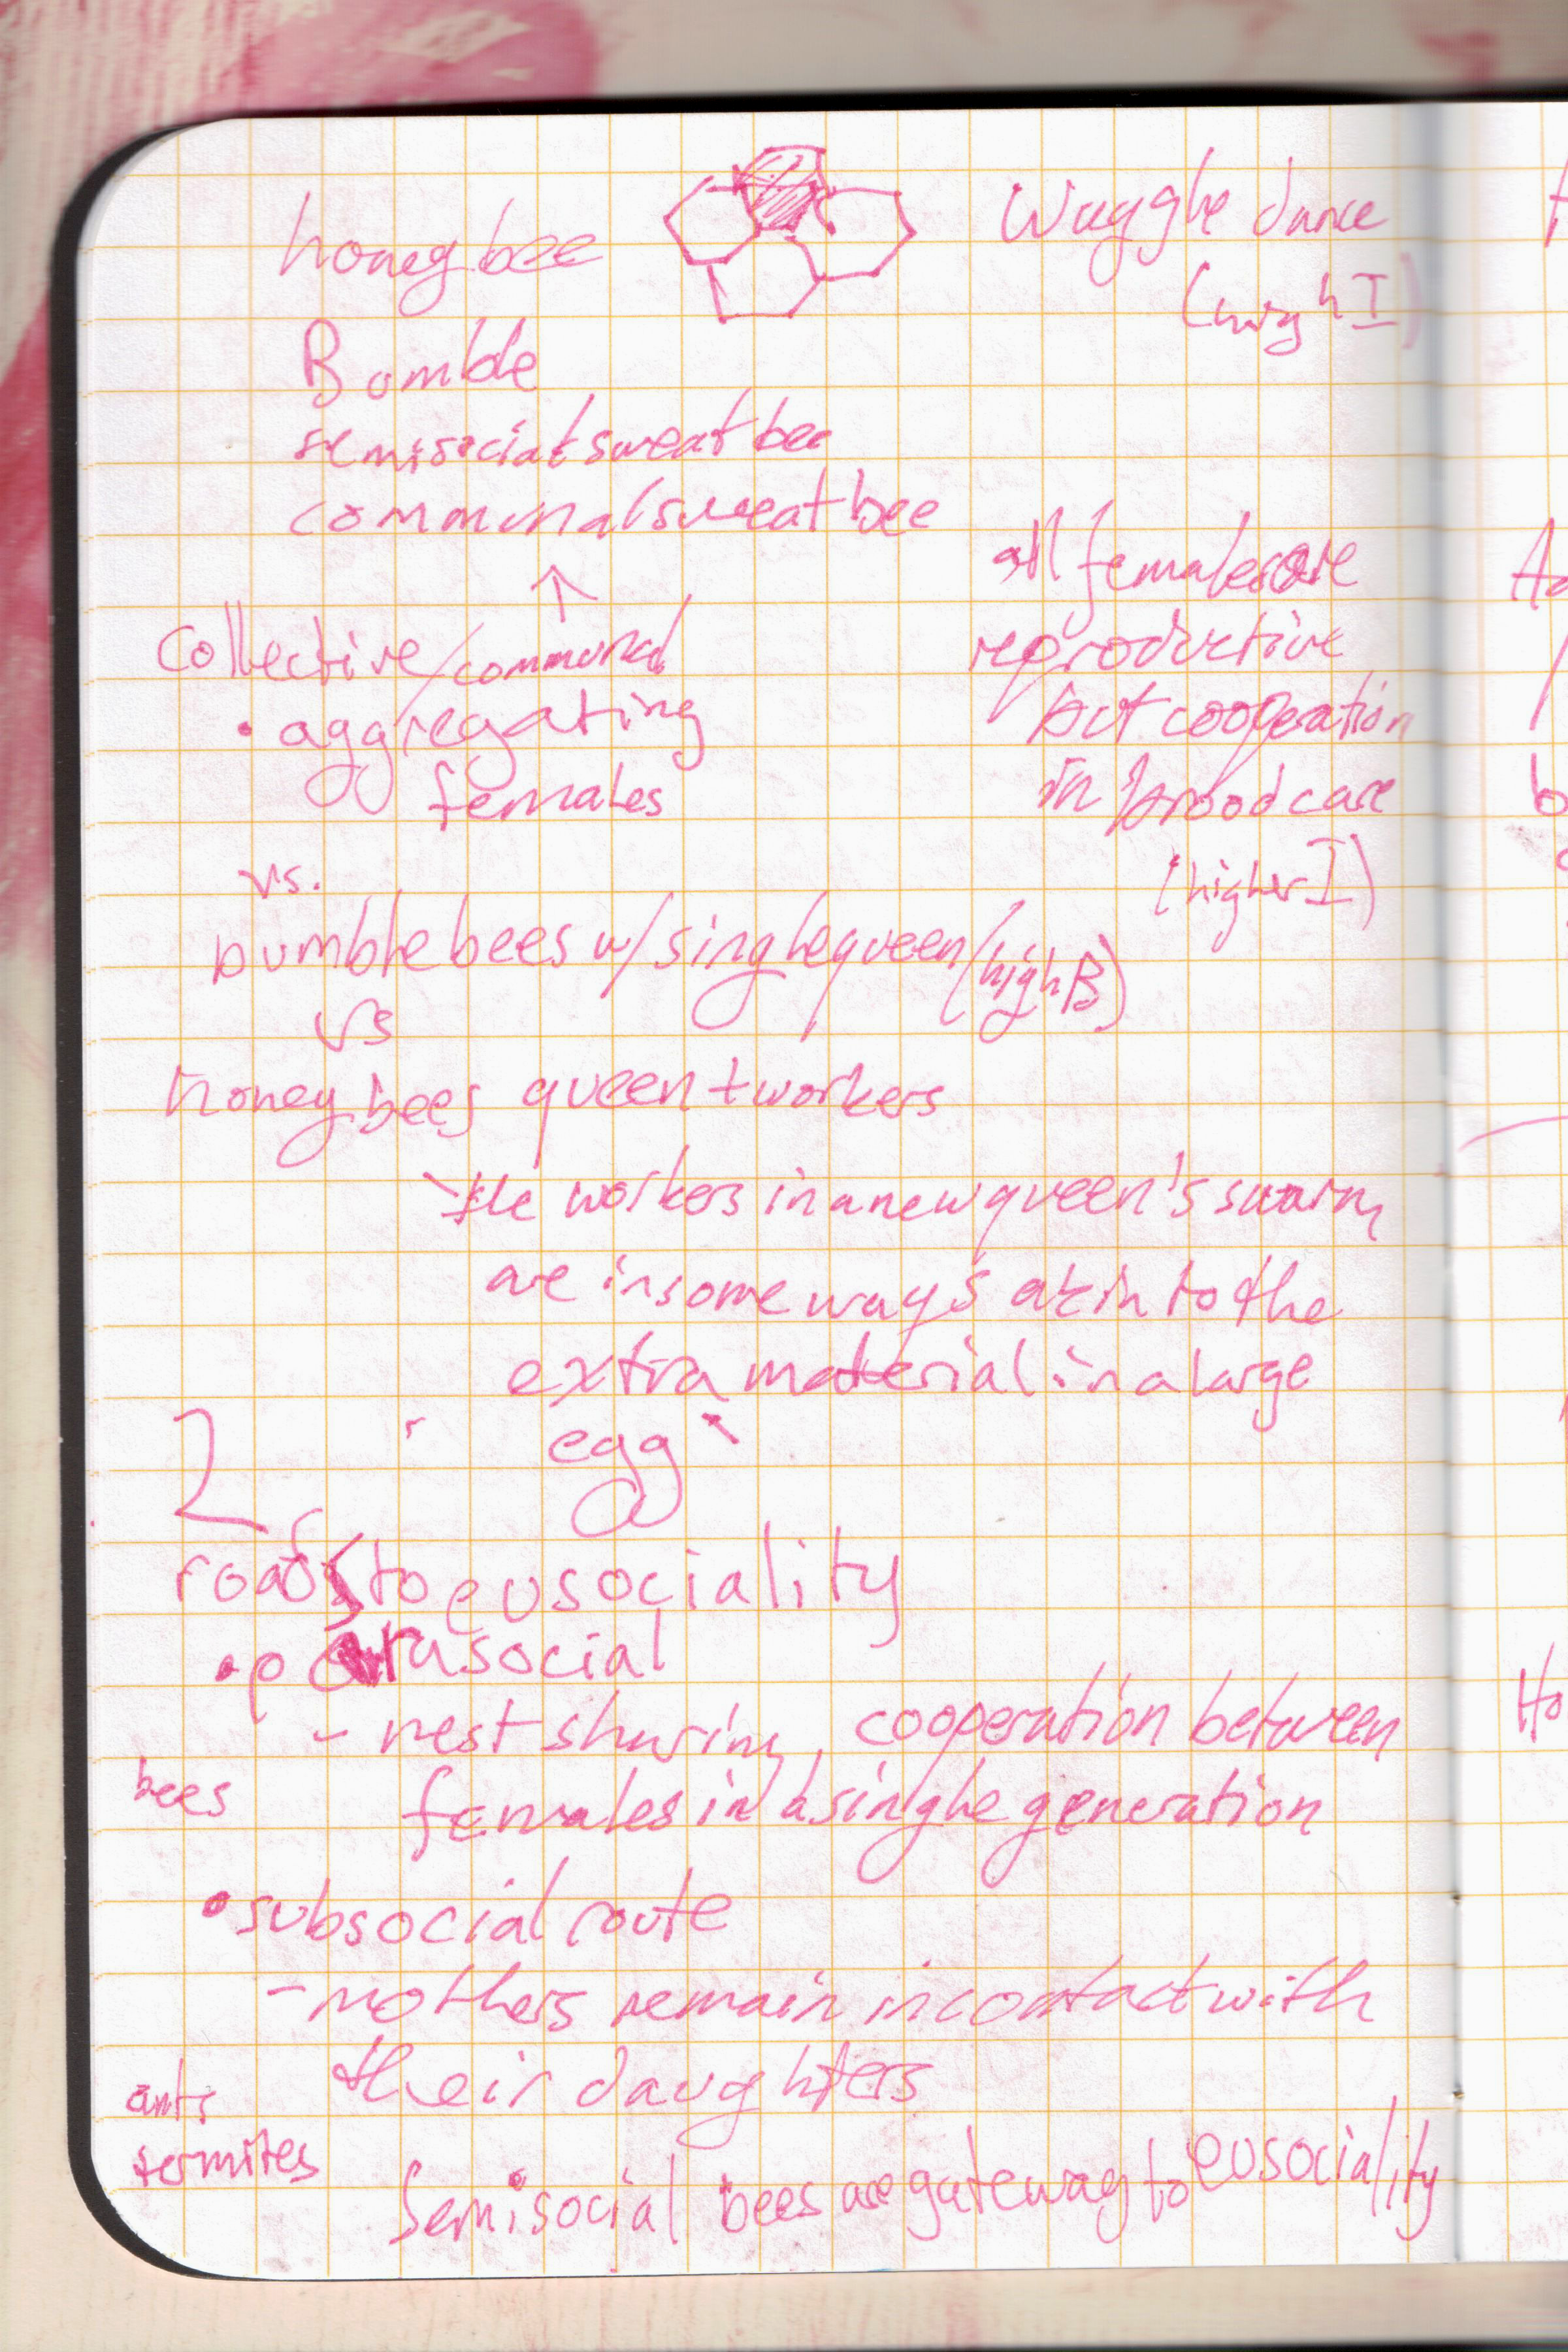 honey bee
Waggle dance
(high I)
Bumble
semisocial sweat bee
communal sweat bee
↑
all females are
reproductive
but cooperation
in brood care
(higher I)
Collective/communal
• aggregating
females
vs.
bumble bees w/ single queen (high B)
vs
honey bees queen + workers
the workers in a new queen's swarm
are in some ways akin to the
extra material in a large
egg
2
roads to eusociality
• parasocial
- nest sharing, cooperation between
bees
females in a single generation
• subsocial route
- mothers remain in contact with
their daughters
ants
termites
Semisocial bees are gateway to eusociality
Ho